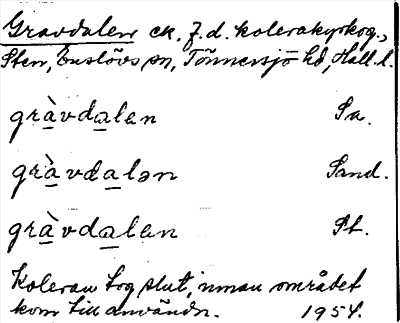 Gravdalen ck, f.d. kolerakyrkog.,
Sten, Enslövs sn, Tönnersjö hd, Hall. l.
gràvdalen Sa.
gràvdalən Sand.
gràvdalen St.
Koleran tog slut, innan området
kom till användn. 1954.